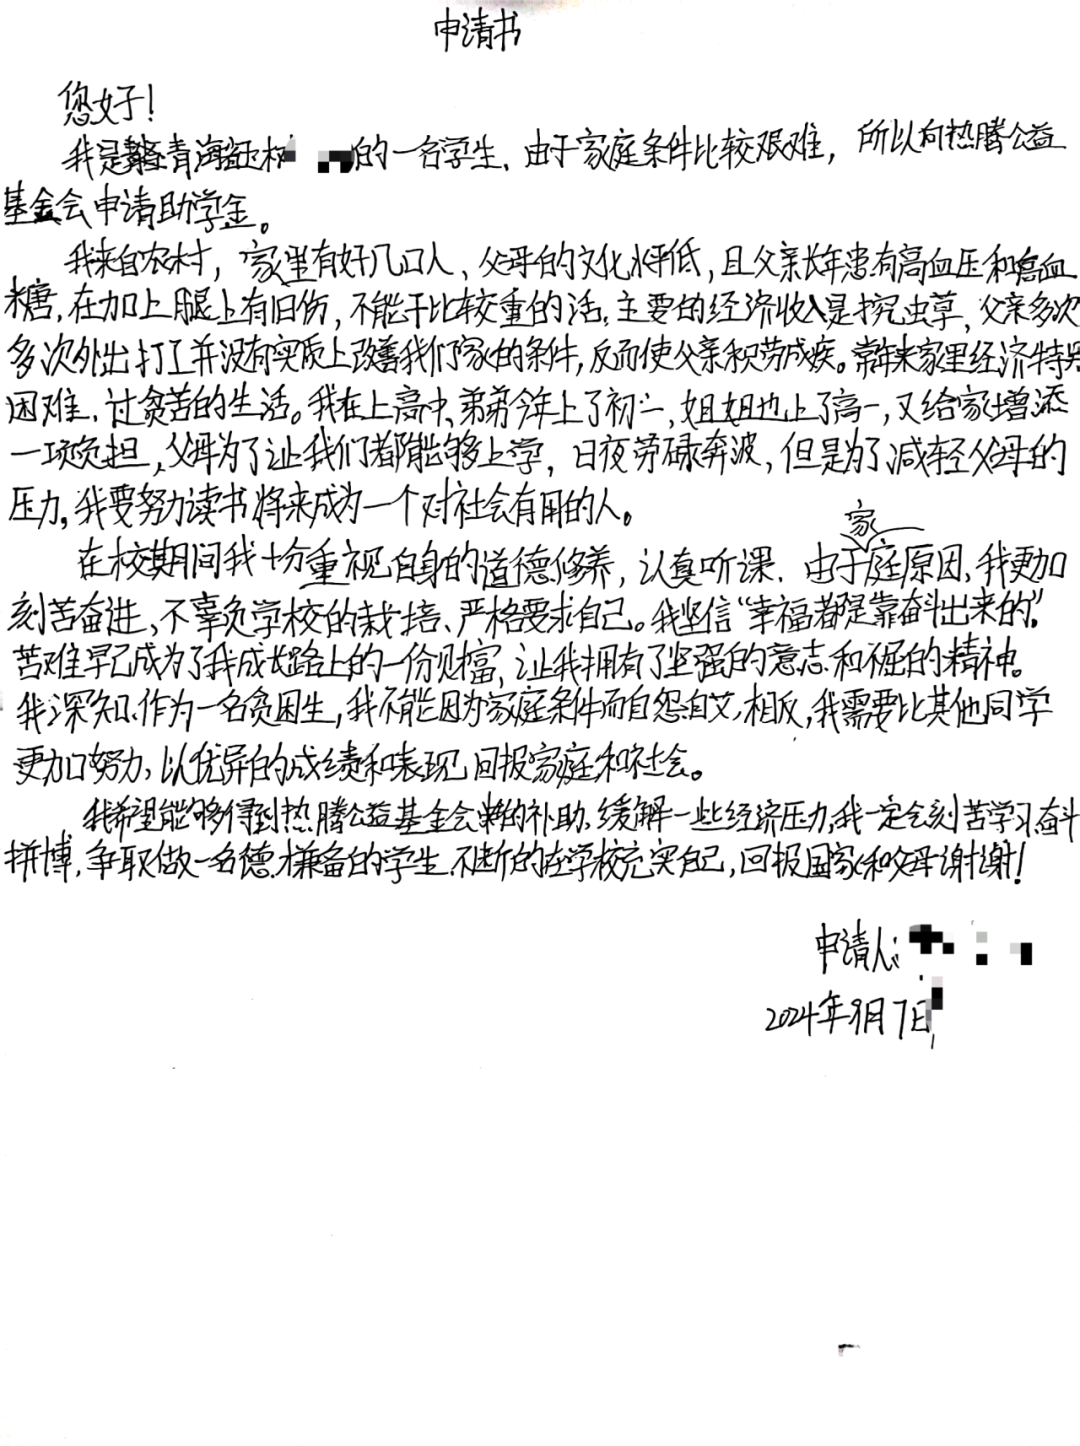 申请书
您好！
我是青海玉树的一名学生，由于家庭条件比较艰难，所以向热腾公益
基金会申请助学金。
我来自农村，家里有好几口人，父母的文化水平低，且父亲长年患有高血压和高血
糖，在加上腿上有旧伤，不能干比较重的活，主要的经济收入是挖虫草，父亲多次
多次外出打工并没有实质上改善我们家的条件，反而使父亲积劳成疾。常年来家里经济特别
困难，过贫苦的生活。我在上高中、弟弟今年上了初一，姐姐也上了高一，又给家增添
一项负担，父母为了让我们都能够上学，日夜劳碌奔波，但是为了减轻父母的
压力，我要努力读书将来成为一个对社会有用的人。
在校期间我十分重视自身的道德修养，认真听课，由于家庭原因，我更加
刻苦奋进，不辜负学校的栽培、严格要求自己。我坚信“幸福都是靠奋斗出来的”
苦难早已成为了我成长路上的一份财富，让我拥有了坚强的意志和不倔的精神。
我深知，作为一名贫困生，我不能因为家庭条件而自怨自艾，相反，我需要比其他同学
更加努力，以优异的成绩和表现回报家庭和社会。
我希望能够得到热腾公益基金会的补助，缓解一些经济压力，我一定会刻苦学习，奋斗
拼博，争取做一名德才兼备的学生，不断的在学校充实自己，回报国家和父母谢谢！
申请人：
2024年9月7日